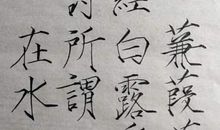 蒹葭
經白露
所謂
在水